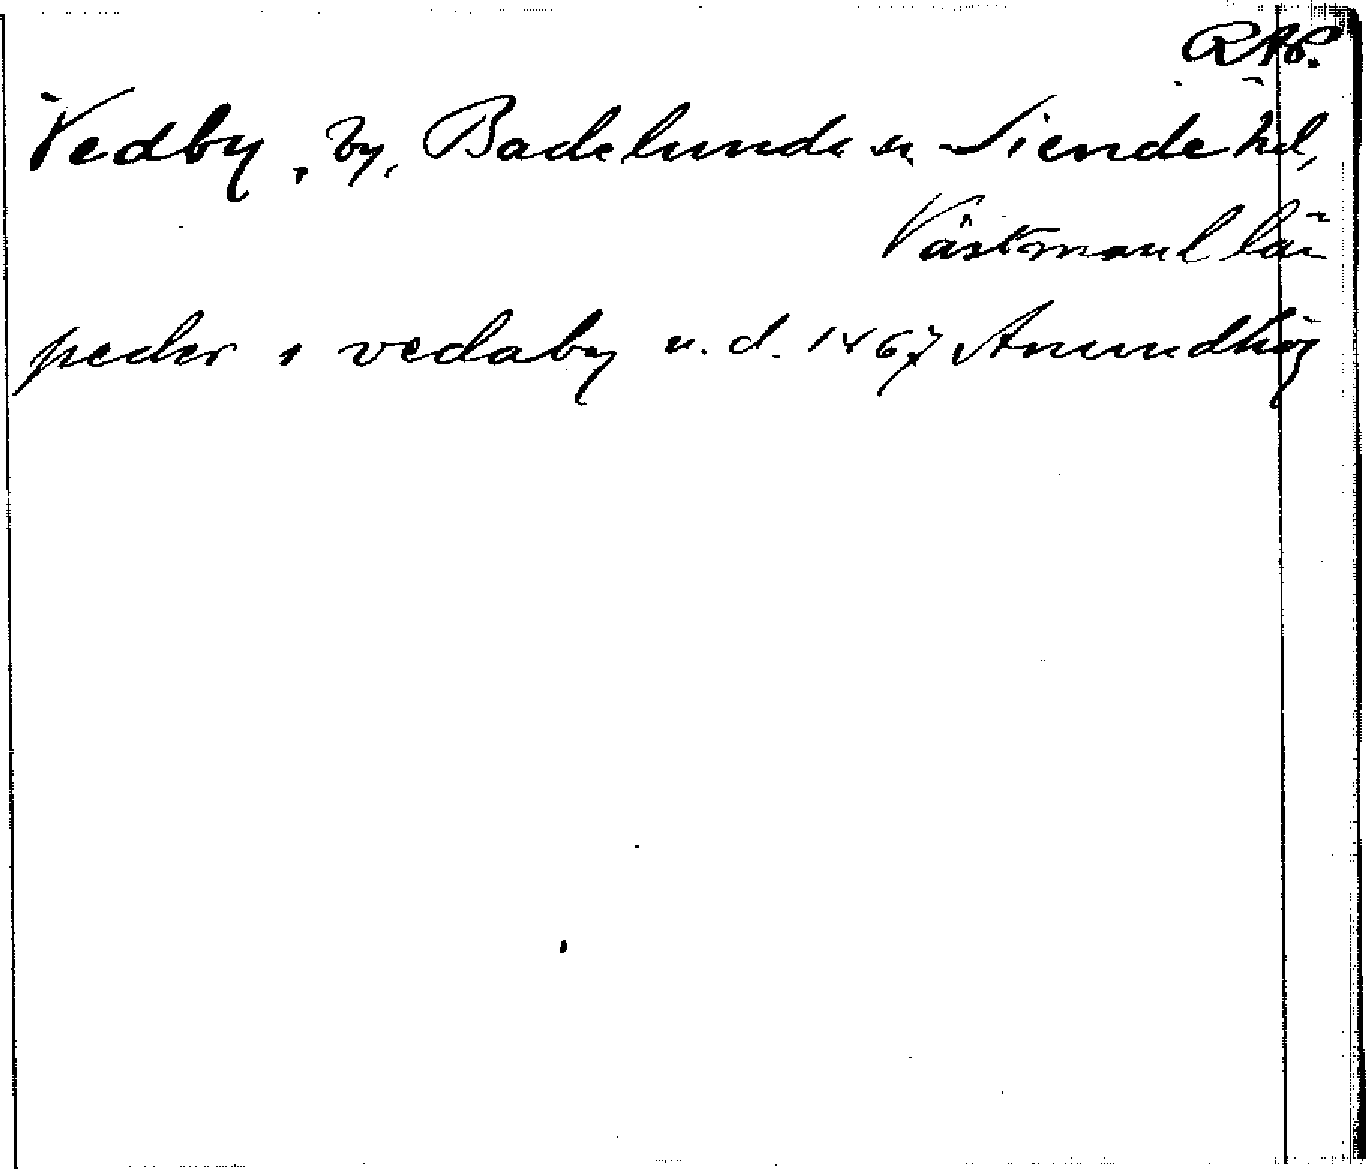 RAP.
Vedby, by, Badelunda sn Siende hd,
Västmanl län
peder i vedaby u. d. 1467 Anundhög